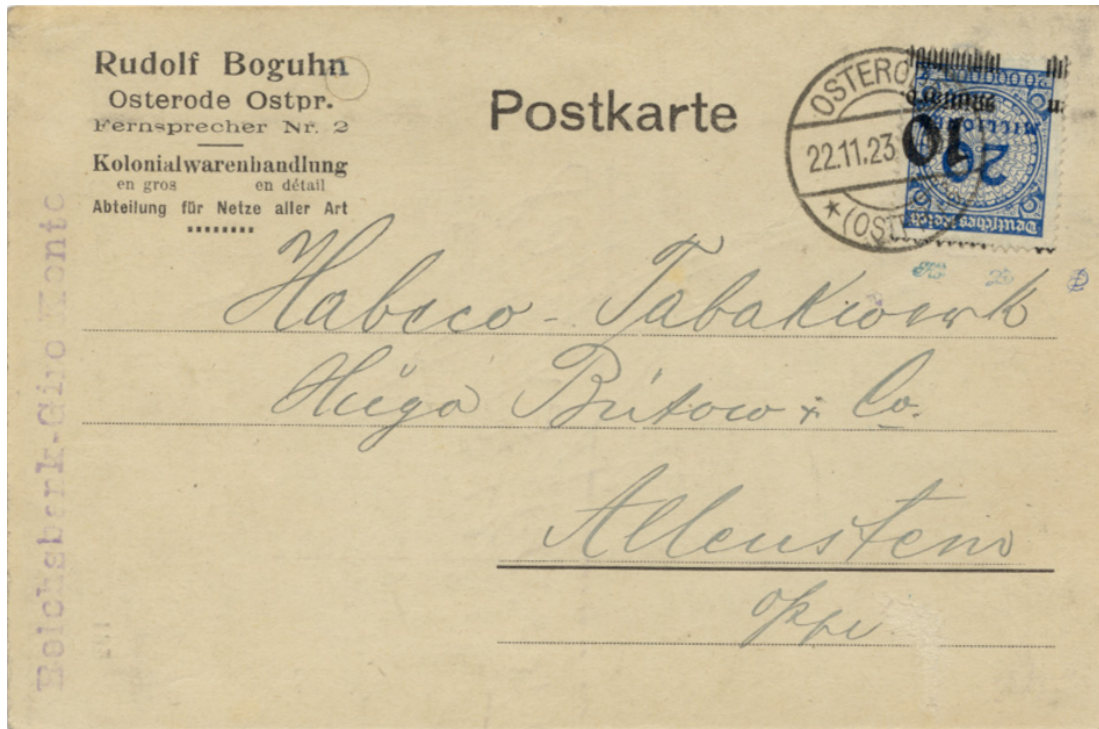 Rudolf Boguhn
Osterode Ostpr.
Fernsprecher Nr. 2
Kolonialwarenhandlung
en gros en détail
Abteilung für Netze aller Art
Postkarte
OSTERO
22.11.23
(OSTP
10
MILLION
20
Deutsches Reich
Habeco-Tabakwerk
Hugo Bütow & Co.
Allenstein
Reichsbank-Giro Konto